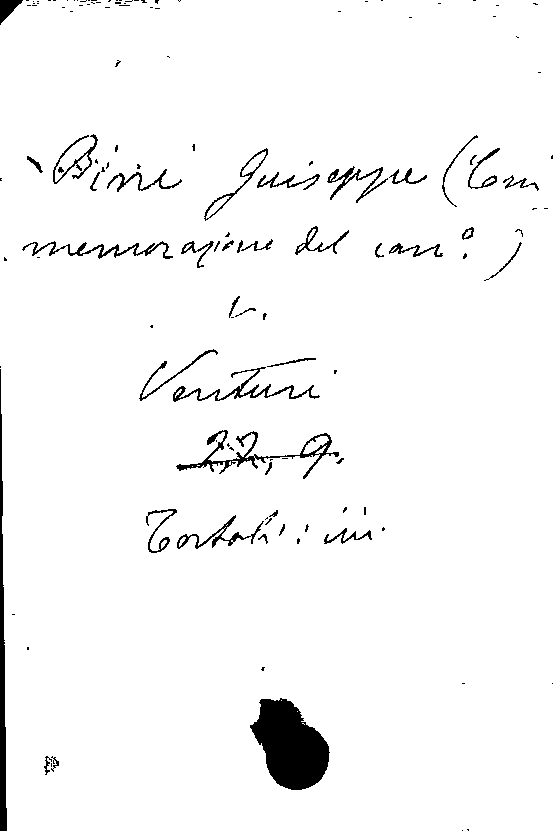 Bini Giuseppe (Com
memorazione del can.º)
v.
Venturi
22, 9.
Tortoli: iii.